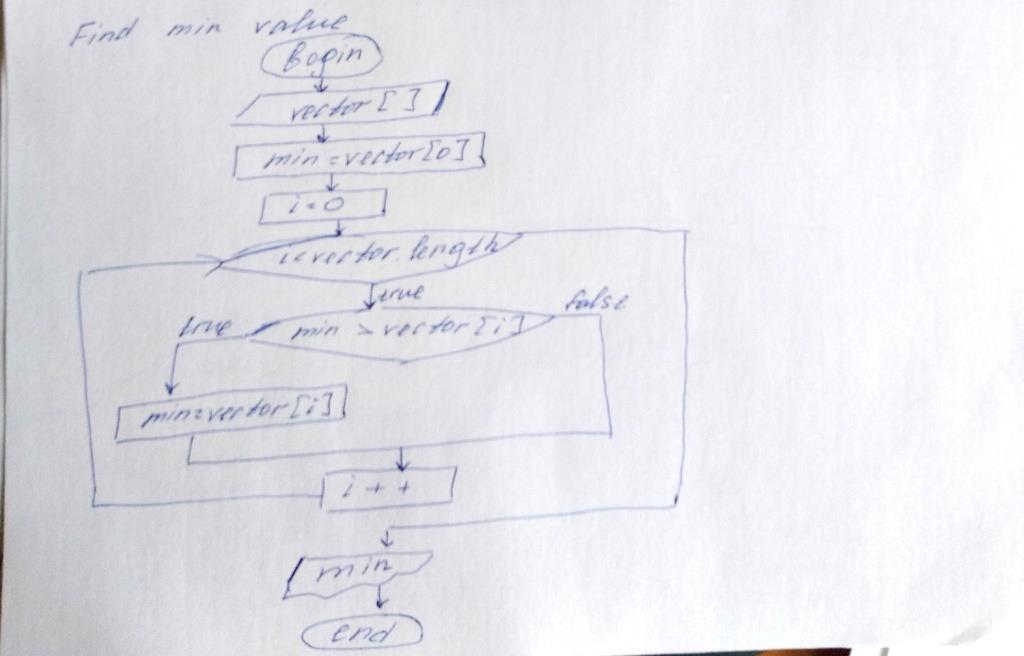 Find min value
Begin
vector []
min = vector[0]
i = 0
i < vector.length
true
false
true
min > vector[i]
min = vector[i]
i + +
min
end